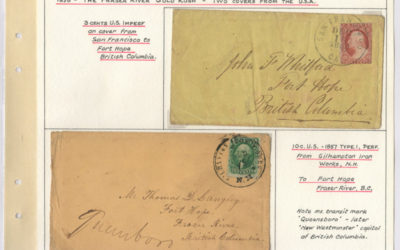 1858 - THE FRASER RIVER GOLD RUSH - TWO COVERS FROM THE U.S.A.
3 CENTS U.S. IMPERF
ON COVER FROM
SAN FRANCISCO TO
FORT HOPE
BRITISH COLUMBIA.
John F. Whitford
Fort Hope
British Columbia
10c U.S. - 1857 TYPE I, PERF.
FROM GILHAMPTON IRON
WORKS, N.H.
TO FORT HOPE
FRASER RIVER, B.C.
NOTE MS. TRANSIT MARK
'QUEENSBORO' - LATER
'NEW WESTMINSTER' CAPITOL
OF BRITISH COLUMBIA.
Mr. Thomas D. Langley
Fort Hope
Frazer River
British Columbia